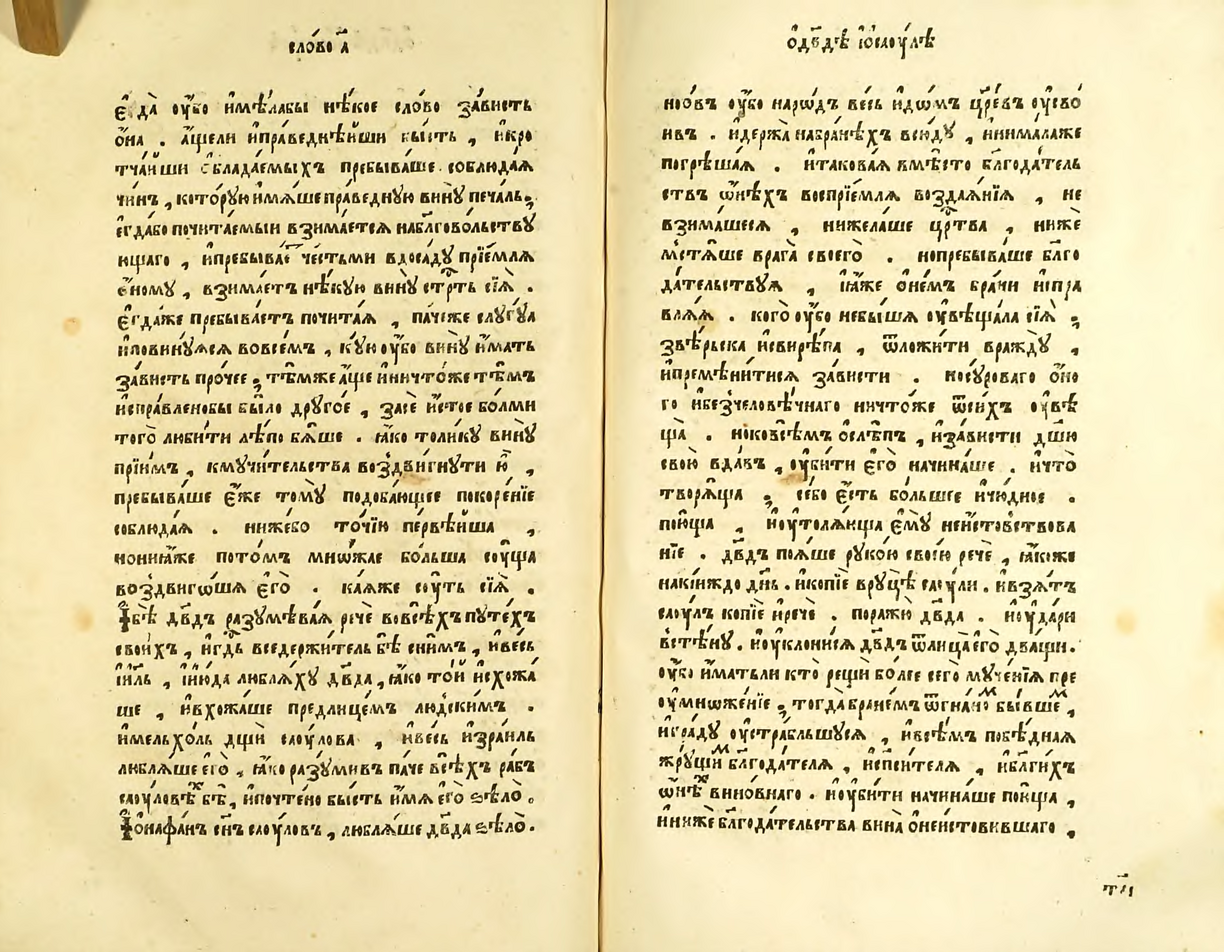 сло́во а҃
є҆да̀ оу҆́бо и҆мѣ́лабы нѣ́кое сло́во за́висть
ѻ҆́на . а҆́щели и҆пра́веднѣйши бы́сть , и҆кро
тча́йши ѡ҆блада́емыхъ пребыва́ше . соблюда́ѧ
чи́нъ , кото́рꙋю и҆мѧ́ше пра́веднꙋю винꙋ̀ печа́ль ,
є҆гда́бо почита́емыи взима́етсѧ наблгово́льствꙋ
ющаго , и҆пребыва́е че́стьми вдоса́дꙋ прїе́млѧ
ѻ҆́номꙋ , взима́етъ нѣ́кꙋю винꙋ̀ стрть сїѧ̀ .
є҆гда́же пребыва́етъ почита́ѧ , па́чеже слꙋгꙋ́ѧ
и҆повинꙋ́ѧсѧ вовсе́мъ , кꙋ́ю оу҆́бо винꙋ̀ и҆́мать
за́висть про́чее , тѣ́мже а҆́ще и҆ничто́же тѣ́мъ
и҆спра́вленобы бы́ло дрꙋго́е , засѐ и҆́стое бо́лми
того̀ люби́ти лѣ́по бѧ́ше . ꙗ҆́ко толи́кꙋ винꙋ̀
прїи́мъ , кмꙋчи́тельства воздви́гнꙋти ю҆̀ ,
пребыва́ше є҆́же томꙋ̀ подоба́ющее покоре́нїе
соблюда́ѧ . ниже́бо то́чїю первѣ́йша ,
нониꙗ́же пото́мъ мно́жае бо́льша сꙋ́ща
воздвиго́шѧ є҆го̀ . ка́ѧже сꙋ́ть сїѧ̀ .
І҆бѣ̀ дв҃дъ разꙋмѣва́ѧ речѐ вовсѣ́хъ пꙋте́хъ
свои́хъ , и҆гд҃ь вседержи́тель бѣ̀ сни́мъ , и҆ве́сь
і҆и҃ль , и҆і҆ю́да люблѧ́хꙋ дв҃да , ꙗ҆́ко то́й и҆схожа́
ше , и҆вхожа́ше предлице́мъ людски́мъ .
и҆мельхо́ль дщѝ саꙋ́лова , и҆ве́сь и҆зра́иль
люблѧ́ше є҆го̀ , ꙗ҆́ко разꙋми́въ па́че всѣ́хъ ра́бъ
саꙋ́ловѣхъ бѣ̀ , и҆почте́но бы́сть и҆́мѧ є҆го̀ ѕѣлѡ̀ .
І҆ѡнаѳа́нъ сн҃ъ саꙋ́ловъ , люблѧ́ше дв҃да ѕѣлѡ̀ .
ѻ҆дв҃дѣ и҆ѡ҆саꙋ́лѣ
но́ѡвъ оу҆́бо наро́дъ ве́сь и҆до́мъ цр҃евъ оу҆сво́
ивъ . и҆держа̀ набра́нѣхъ всю́дꙋ , нинма́лаже
погрѣша́ѧ . и҆такова́ѧ вмѣ́сто бл҃года́тель
ствъ ѿни́хъ воспрїе́млѧ воздаѧ́нїѧ , не
взима́шесѧ , нижела́ше цр҃тва , ни́же
мстѧ́ше врага̀ своего̀ . нопребыва́ше бл҃го
да́тельствꙋѧ , ꙗ҆́же ѻ҆не́мъ бра́чи и҆спра
влѧ́ѧ . кого̀ оу҆́бо небы́шѧ оу҆вѣща́ла сїѧ̀ ,
звѣ́рьска и҆свирѣ́па , ѿложи́ти враждꙋ̀ ,
и҆премѣни́тисѧ за́висти . носꙋро́ваго ѻ҆́но
го и҆безчеловѣ́чнаго ничто́же ѿси́хъ оу҆вѣ
ща̀ . ноковсѣ́мъ ѻ҆слѣ́пъ , и҆за́висти дш҃ю
свою̀ вда́въ , оу҆би́ти є҆го̀ начина́ше . и҆что̀
творѧ́ща , се́бо є҆́сть бо́льшее и҆чю́дное .
пою́ща , и҆оу҆толѧ́юща є҆мꙋ̀ неи́стовствова
нїе . дв҃дъ поѧ́ше рꙋко́ю свое́ю речѐ , ꙗ҆́коже
наки́ждо дн҃ь . и҆копїѐ врꙋцѣ̀ саꙋ́ли . и҆взѧ́тъ
саꙋ́лъ копїѐ и҆речѐ . поражю̀ дв҃да . и҆оу҆да́ри
встѣ́нꙋ . и҆оу҆клони́сѧ дв҃дъ ѿлица̀ є҆го̀ два́щи .
оу҆́бо и҆мать́ли кто̀ рещѝ бо́лее сего̀ мꙋче́нїѧ пре
оу҆множе́нїе , тогда̀ бране́мъ ѿгна́ном бы́вшем ,
и҆гра́дꙋ оу҆страбльшꙋ́сѧ , и҆всѣ́мъ побѣ́днаѧ
жрꙋ́щим бл҃года́телѧ , и҆спси́телѧ , и҆бл҃ги́хъ
ѻ҆нѣхъ вино́внаго . и҆оу҆би́ти начина́ше пою́ща ,
и҆ниже́ бл҃года́тельства вина̀ ѻ҆неистови́вшаго ,